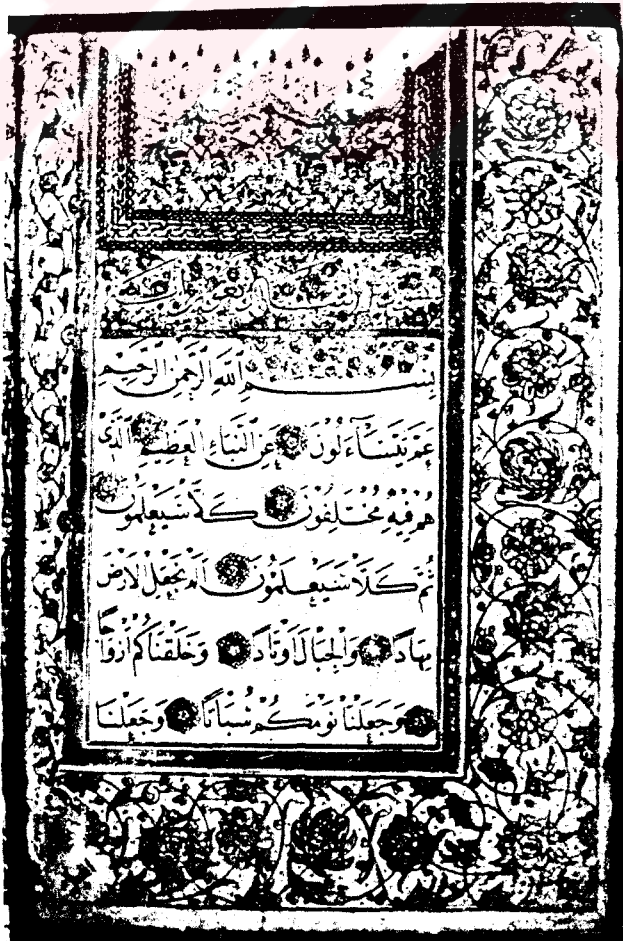 بِسْمِ اللَّهِ الرَّحْمٰنِ الرَّحِيمِ
عَمَّ يَتَسَاءَلُونَ عَنِ النَّبَاءِ الْعَظِيمِ الَّذِي
هُمْ فِيهِ مُخْتَلِفُونَ كَلَّا سَيَعْلَمُونَ
ثُمَّ كَلَّا سَيَعْلَمُونَ اَلَمْ نَجْعَلِ الْاَرْضَ
مِهَادًا وَالْجِبَالَ اَوْتَادًا وَخَلَقْنَاكُمْ اَزْوَاجًا
وَجَعَلْنَا نَوْمَكُمْ سُبَاتًا وَجَعَلْنَا